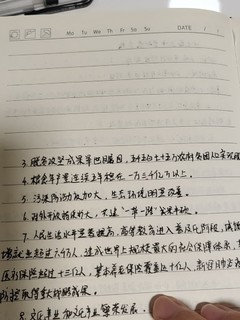 Mo Tu We Th Fr Sa Su DATE
3. 脱贫攻坚成果举世瞩目，
4. 粮食年产量连续五年稳定在一万三千亿斤以上。
5. 污染防治力度加大，生态环境明显改善。
6. 对外开放持续扩大，共建“一带一路”成果丰硕。
7. 人民生活水平显著提高，高等教育进入普及化阶段，城镇
增就业超过六千万人，建成世界上规模最大的社会保障体系，
医疗保险超过十三亿人，基本养老保险覆盖近十亿人，新冠肺炎
防控取得重大战略成果。
8. 文化事业和文化产业繁荣发展。